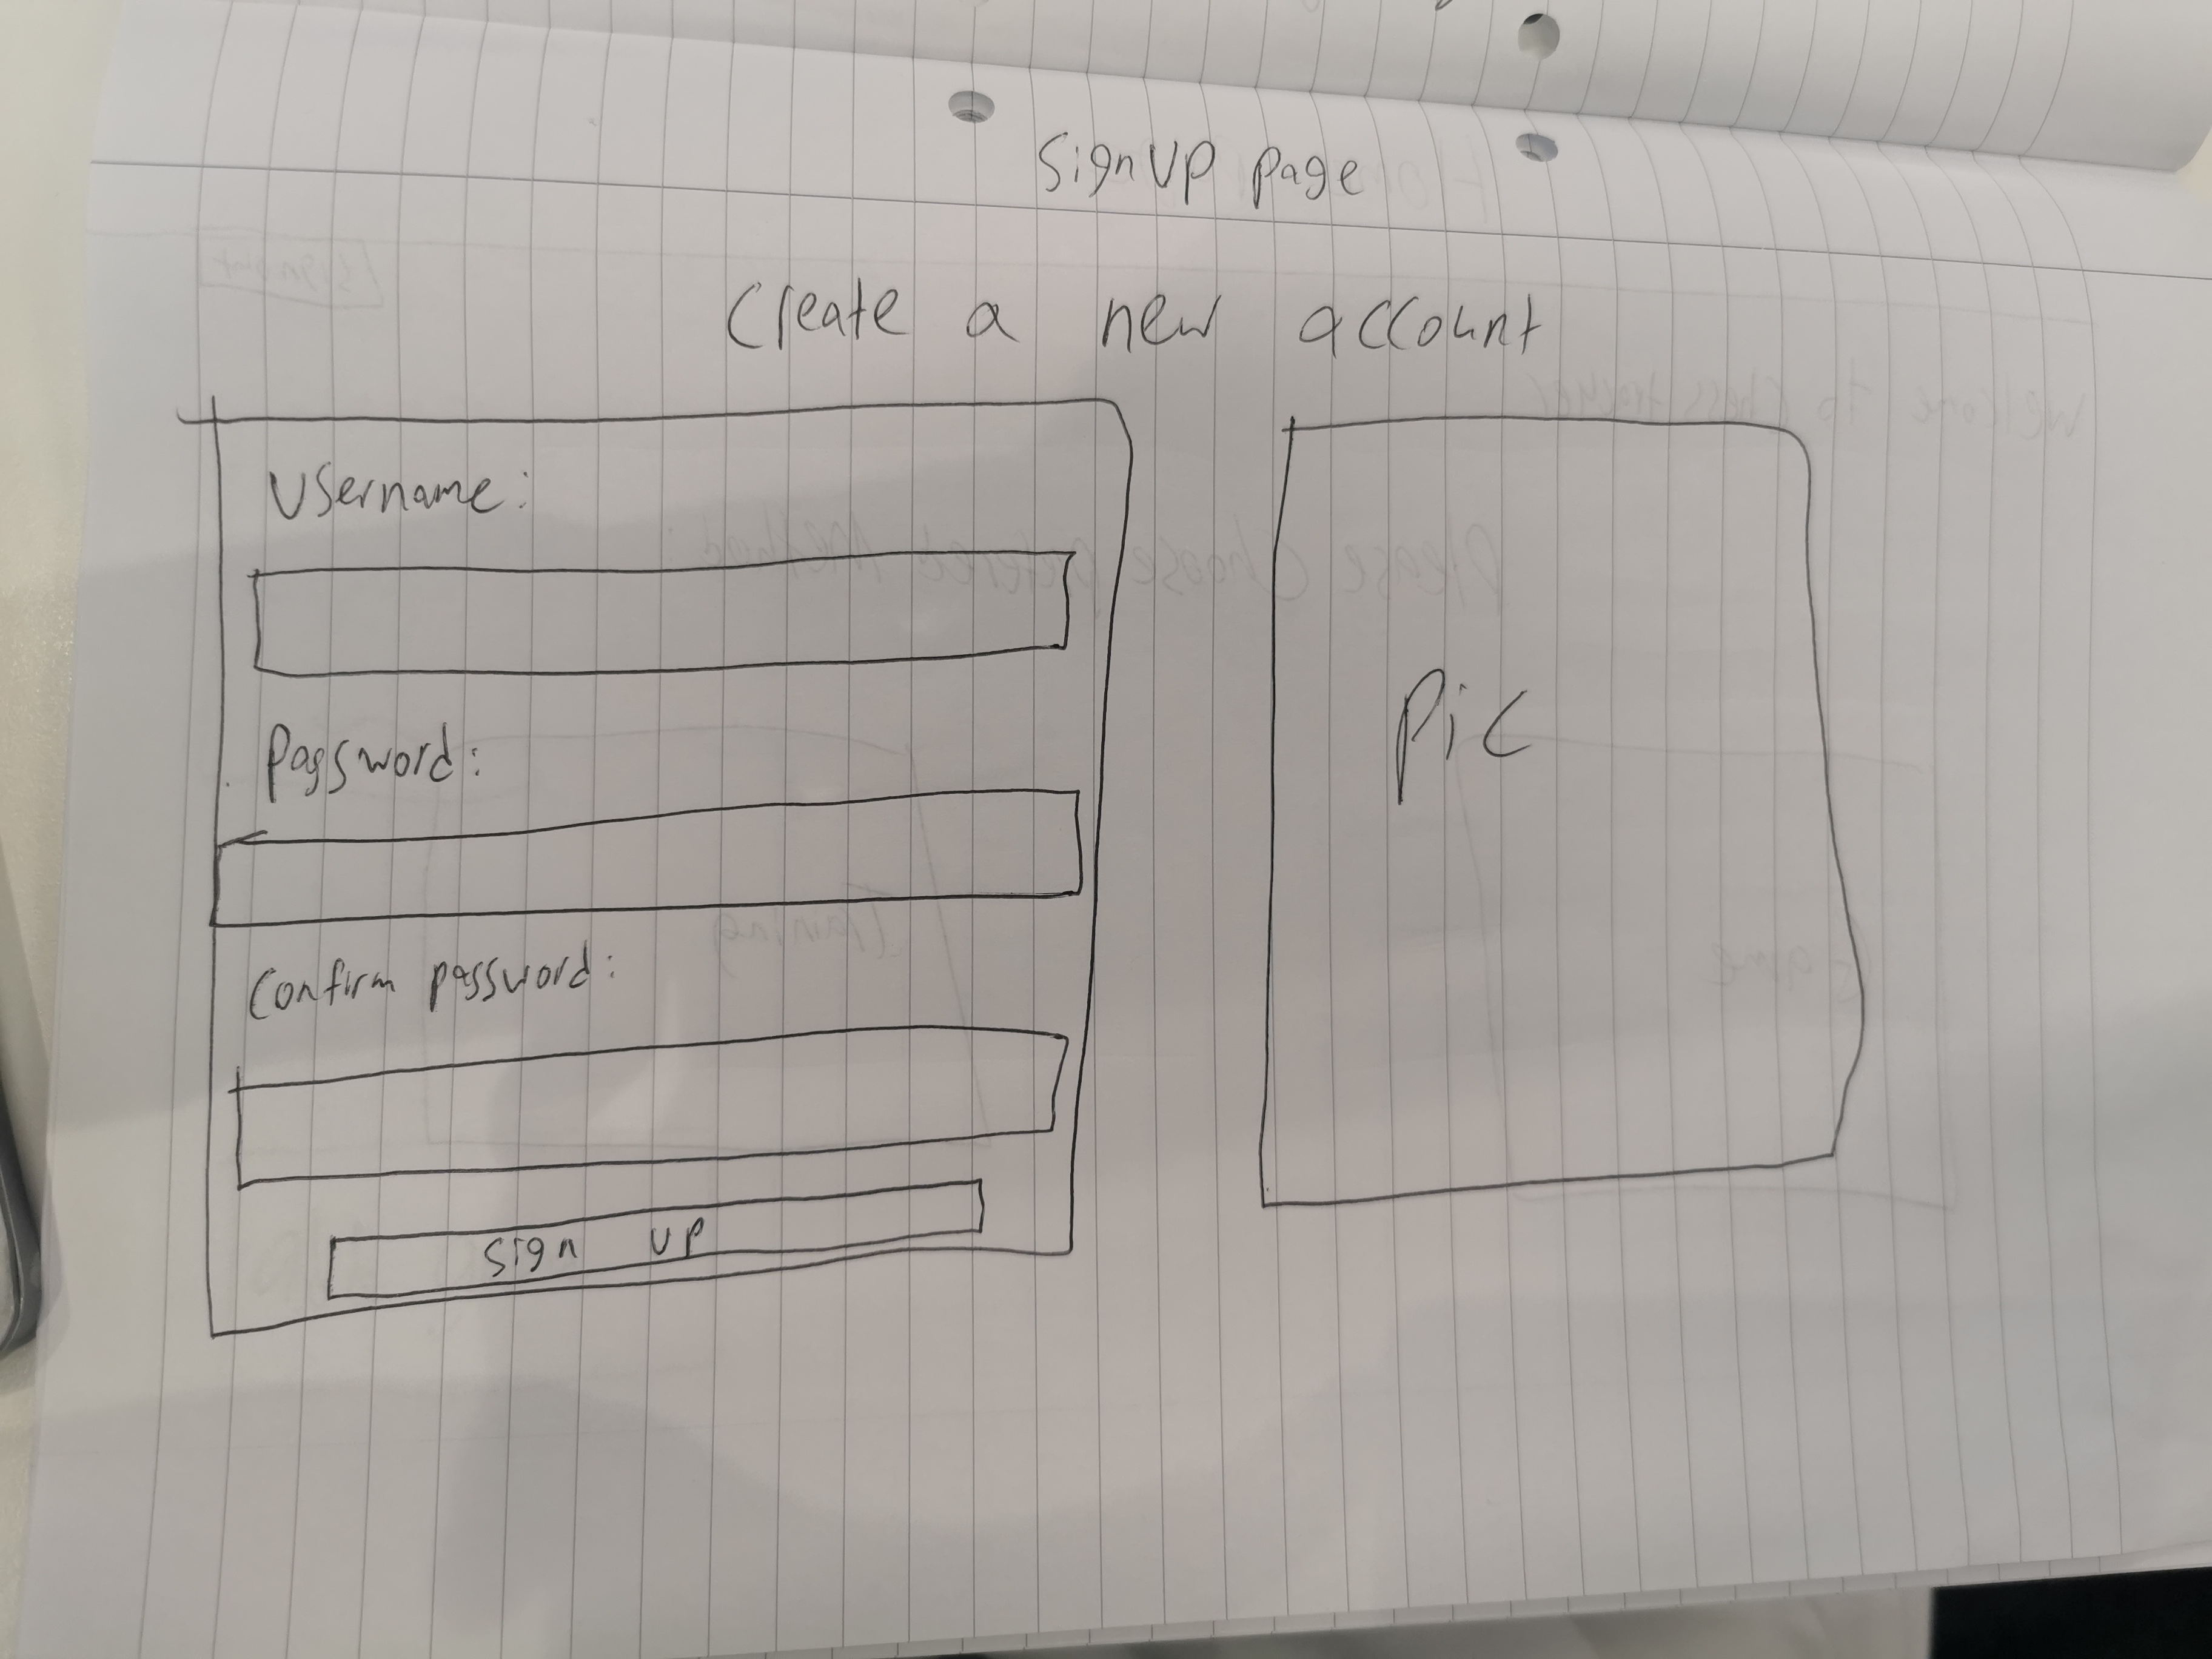 Sign UP page
Create a new account
Username:
Password:
Confirm password:
Sign up
Pic